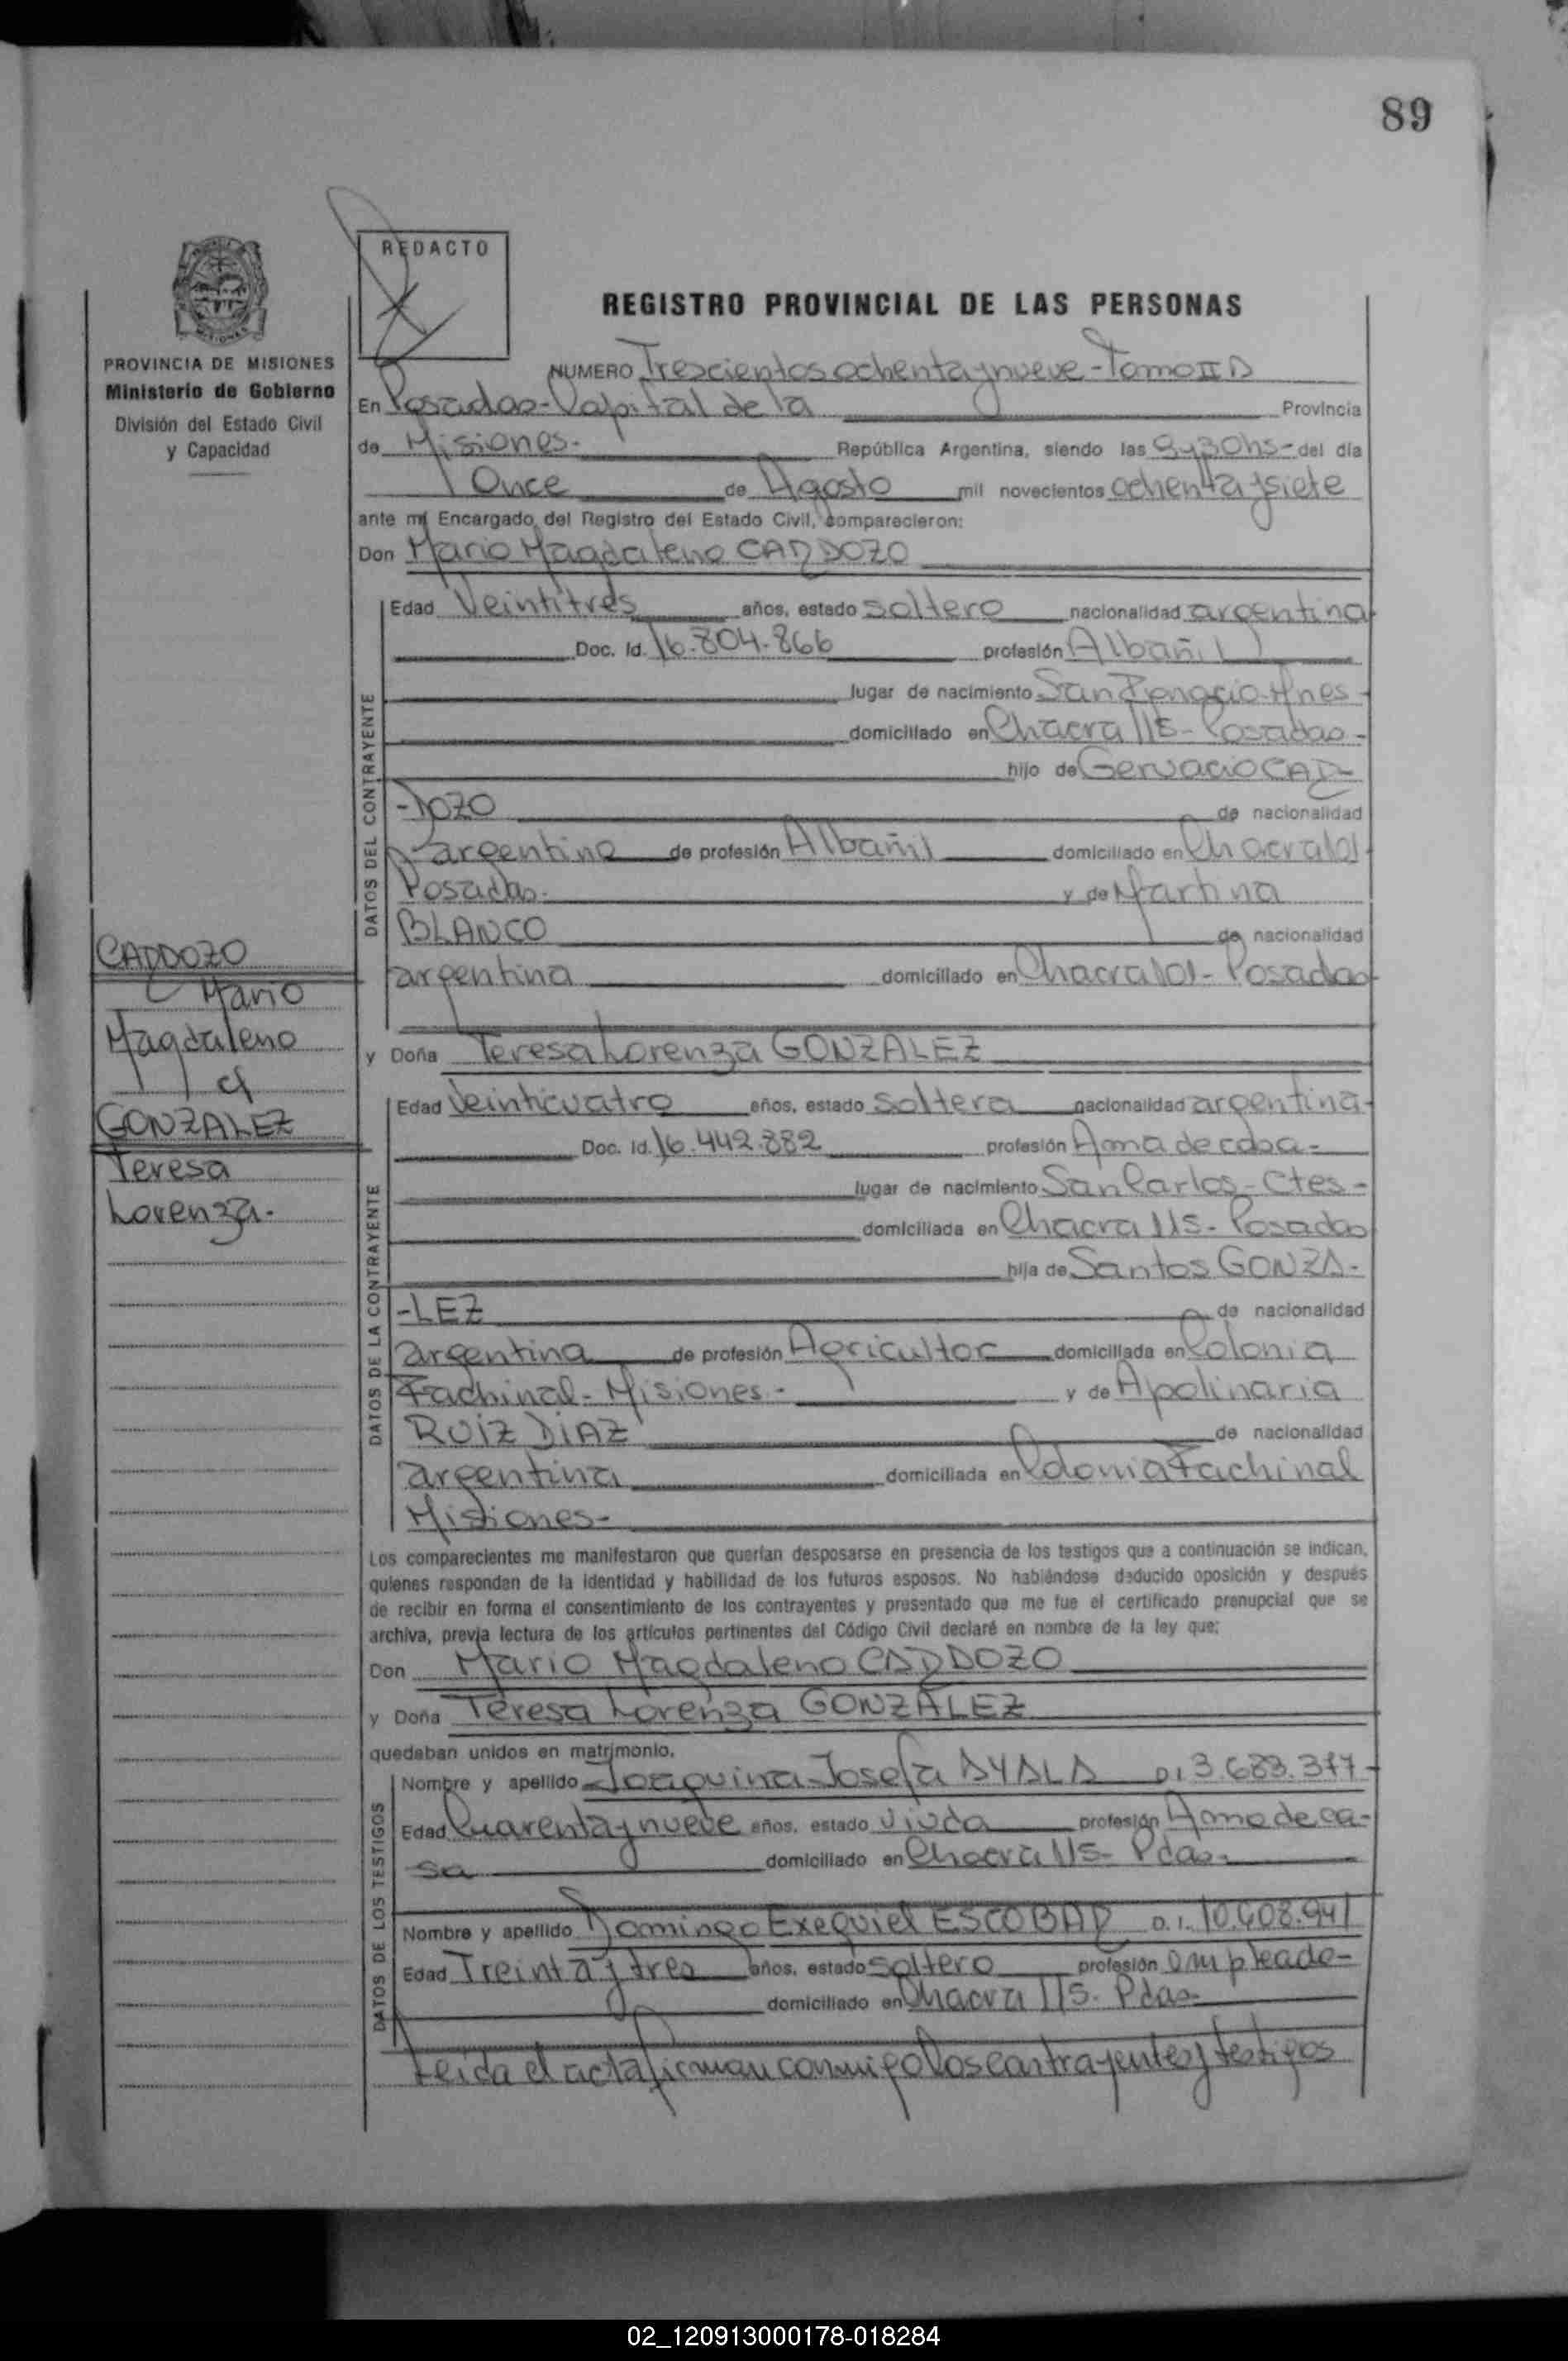 89
REDACTO
REGISTRO PROVINCIAL DE LAS PERSONAS
PROVINCIA DE MISIONES
Ministerio de Gobierno
División del Estado Civil
y Capacidad
NUMERO Trescientos ochenta y nueve - Tomo II D
En Posadas - Capital de la Provincia
de Misiones - República Argentina, siendo las 9 y 30 hs - del día
Once de Agosto mil novecientos ochenta y siete
ante mí Encargado del Registro del Estado Civil, comparecieron:
Don Mario Magdaleno CARDOZO
DATOS DEL CONTRAYENTE
Edad Veintitres años, estado soltero nacionalidad argentina
Doc. Id. 16.804.866 profesión Albañil
lugar de nacimiento San Ignacio - Mnes -
domiciliado en Chacra 115 - Posadas -
hijo de Gervacio CAR-
-DOZO de nacionalidad
argentina de profesión Albañil domiciliado en Chacra 101
Posadas - y de Martina
BLANCO de nacionalidad
argentina domiciliado en Chacra 101 - Posadas
CARDOZO
Mario
Magdaleno
c/
GONZALEZ
Teresa
Lorenza -
y Doña Teresa Lorenza GONZALEZ
DATOS DE LA CONTRAYENTE
Edad Veinticuatro años, estado soltera nacionalidad argentina
Doc. Id. 16.442.882 profesión Ama de casa -
lugar de nacimiento San Carlos - Ctes -
domiciliada en Chacra 115 - Posadas
hija de Santos GONZA-
-LEZ de nacionalidad
argentina de profesión Agricultor domiciliada en Colonia
Fachinal - Misiones - y de Apolinaria
RUIZ DIAZ de nacionalidad
argentina domiciliada en Colonia Fachinal
Misiones -
Los comparecientes me manifestaron que querían desposarse en presencia de los testigos que a continuación se indican,
quienes responden de la identidad y habilidad de los futuros esposos. No habiéndose deducido oposición y después
de recibir en forma el consentimiento de los contrayentes y presentado que me fue el certificado prenupcial que se
archiva, previa lectura de los artículos pertinentes del Código Civil declaré en nombre de la ley que:
Don Mario Magdaleno CARDOZO
y Doña Teresa Lorenza GONZALEZ
quedaban unidos en matrimonio.
DATOS DE LOS TESTIGOS
Nombre y apellido Joaquina Josefa AYALA D.I 3.683.377 -
Edad Cuarenta y nueve años, estado viuda profesión Ama de ca-
sa domiciliado en Chacra 115 - Pdas -
Nombre y apellido Domingo Exequiel ESCOBAR D.I. 10.608.941
Edad Treinta y tres años, estado soltero profesión empleado -
domiciliado en Chacra 115 - Pdas -
Leida el acta firman conmigo los contrayentes y testigos
02_120913000178-018284